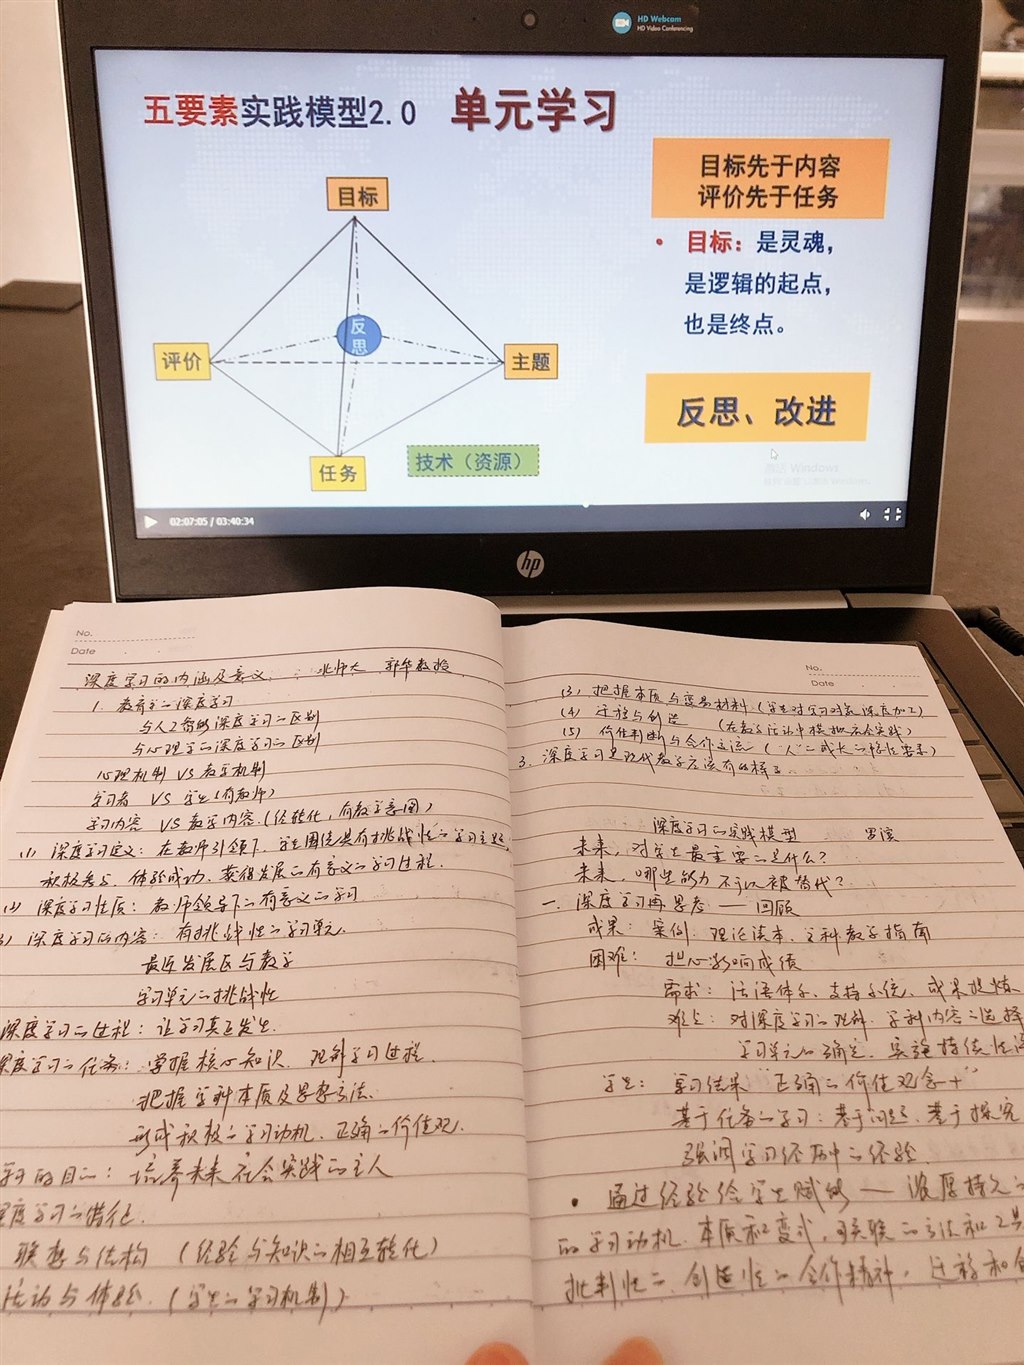 HD Webcam
HD Video Conferencing
五要素实践模型2.0 单元学习
目标先于内容
评价先于任务
目标
• 目标：是灵魂，
是逻辑的起点，
也是终点。
反
思
评价
主题
反思、改进
任务
技术（资源）
激活 Windows
02:07:05 / 03:40:34
hp
No.
Date
深度学习的内涵及意义 北师大 郭华教授
1. 教育学的深度学习
与人工智能深度学习的区别
与心理学的深度学习的区别
心理机制 VS 教学机制
学习者 VS 学生(有教师)
学习内容 VS 教学内容(经转化,有教学意图)
(1) 深度学习定义: 在教师引领下, 学生围绕具有挑战性的学习主题,
积极参与、体验成功、获得发展的有意义的学习过程.
(2) 深度学习性质: 教师领导下的有意义的学习
深度学习的内容: 有挑战性的学习单元.
最近发展区与教学
学习单元的挑战性
深度学习的过程: 让学习真正发生.
深度学习的任务: 掌握核心知识、理解学习过程.
把握学科本质及思想方法.
形成积极的学习动机、正确的价值观.
学习的目的: 培养未来社会实践的主人
深度学习的特征.
联想与结构 (经验与知识的相互转化)
活动与体验. (学生的学习机制)
No.
Date
(3) 把握本质与变易材料 (学生对学习对象深度加工)
(4) 迁移与创造 (在教学活动中模拟社会实践)
(5) 价值判断与合作交流 ("人"的成长的隐性要素)
3. 深度学习是现代教学应该有的样子
深度学习的实践模型 罗滨
未来, 对学生最重要的是什么?
未来, 哪些能力不可以被替代?
一. 深度学习再思考 —— 回顾
成果: 案例、理论读本、学科教学指南
困难: 担心影响成绩
需求: 话语体系、支持系统、成果提炼
难点: 对深度学习的理解、学科内容的选择
学习单元的确定、实施持续性
学生: 学习结果 "正确的价值观念+"
基于任务的学习: 基于问题、基于探究
强调学习经历中的经验.
• 通过经验给学生赋能 —— 浓厚持久
的学习动机、本质和变式、关联的方法和工具
批判性的、创造性的合作精神, 迁移和